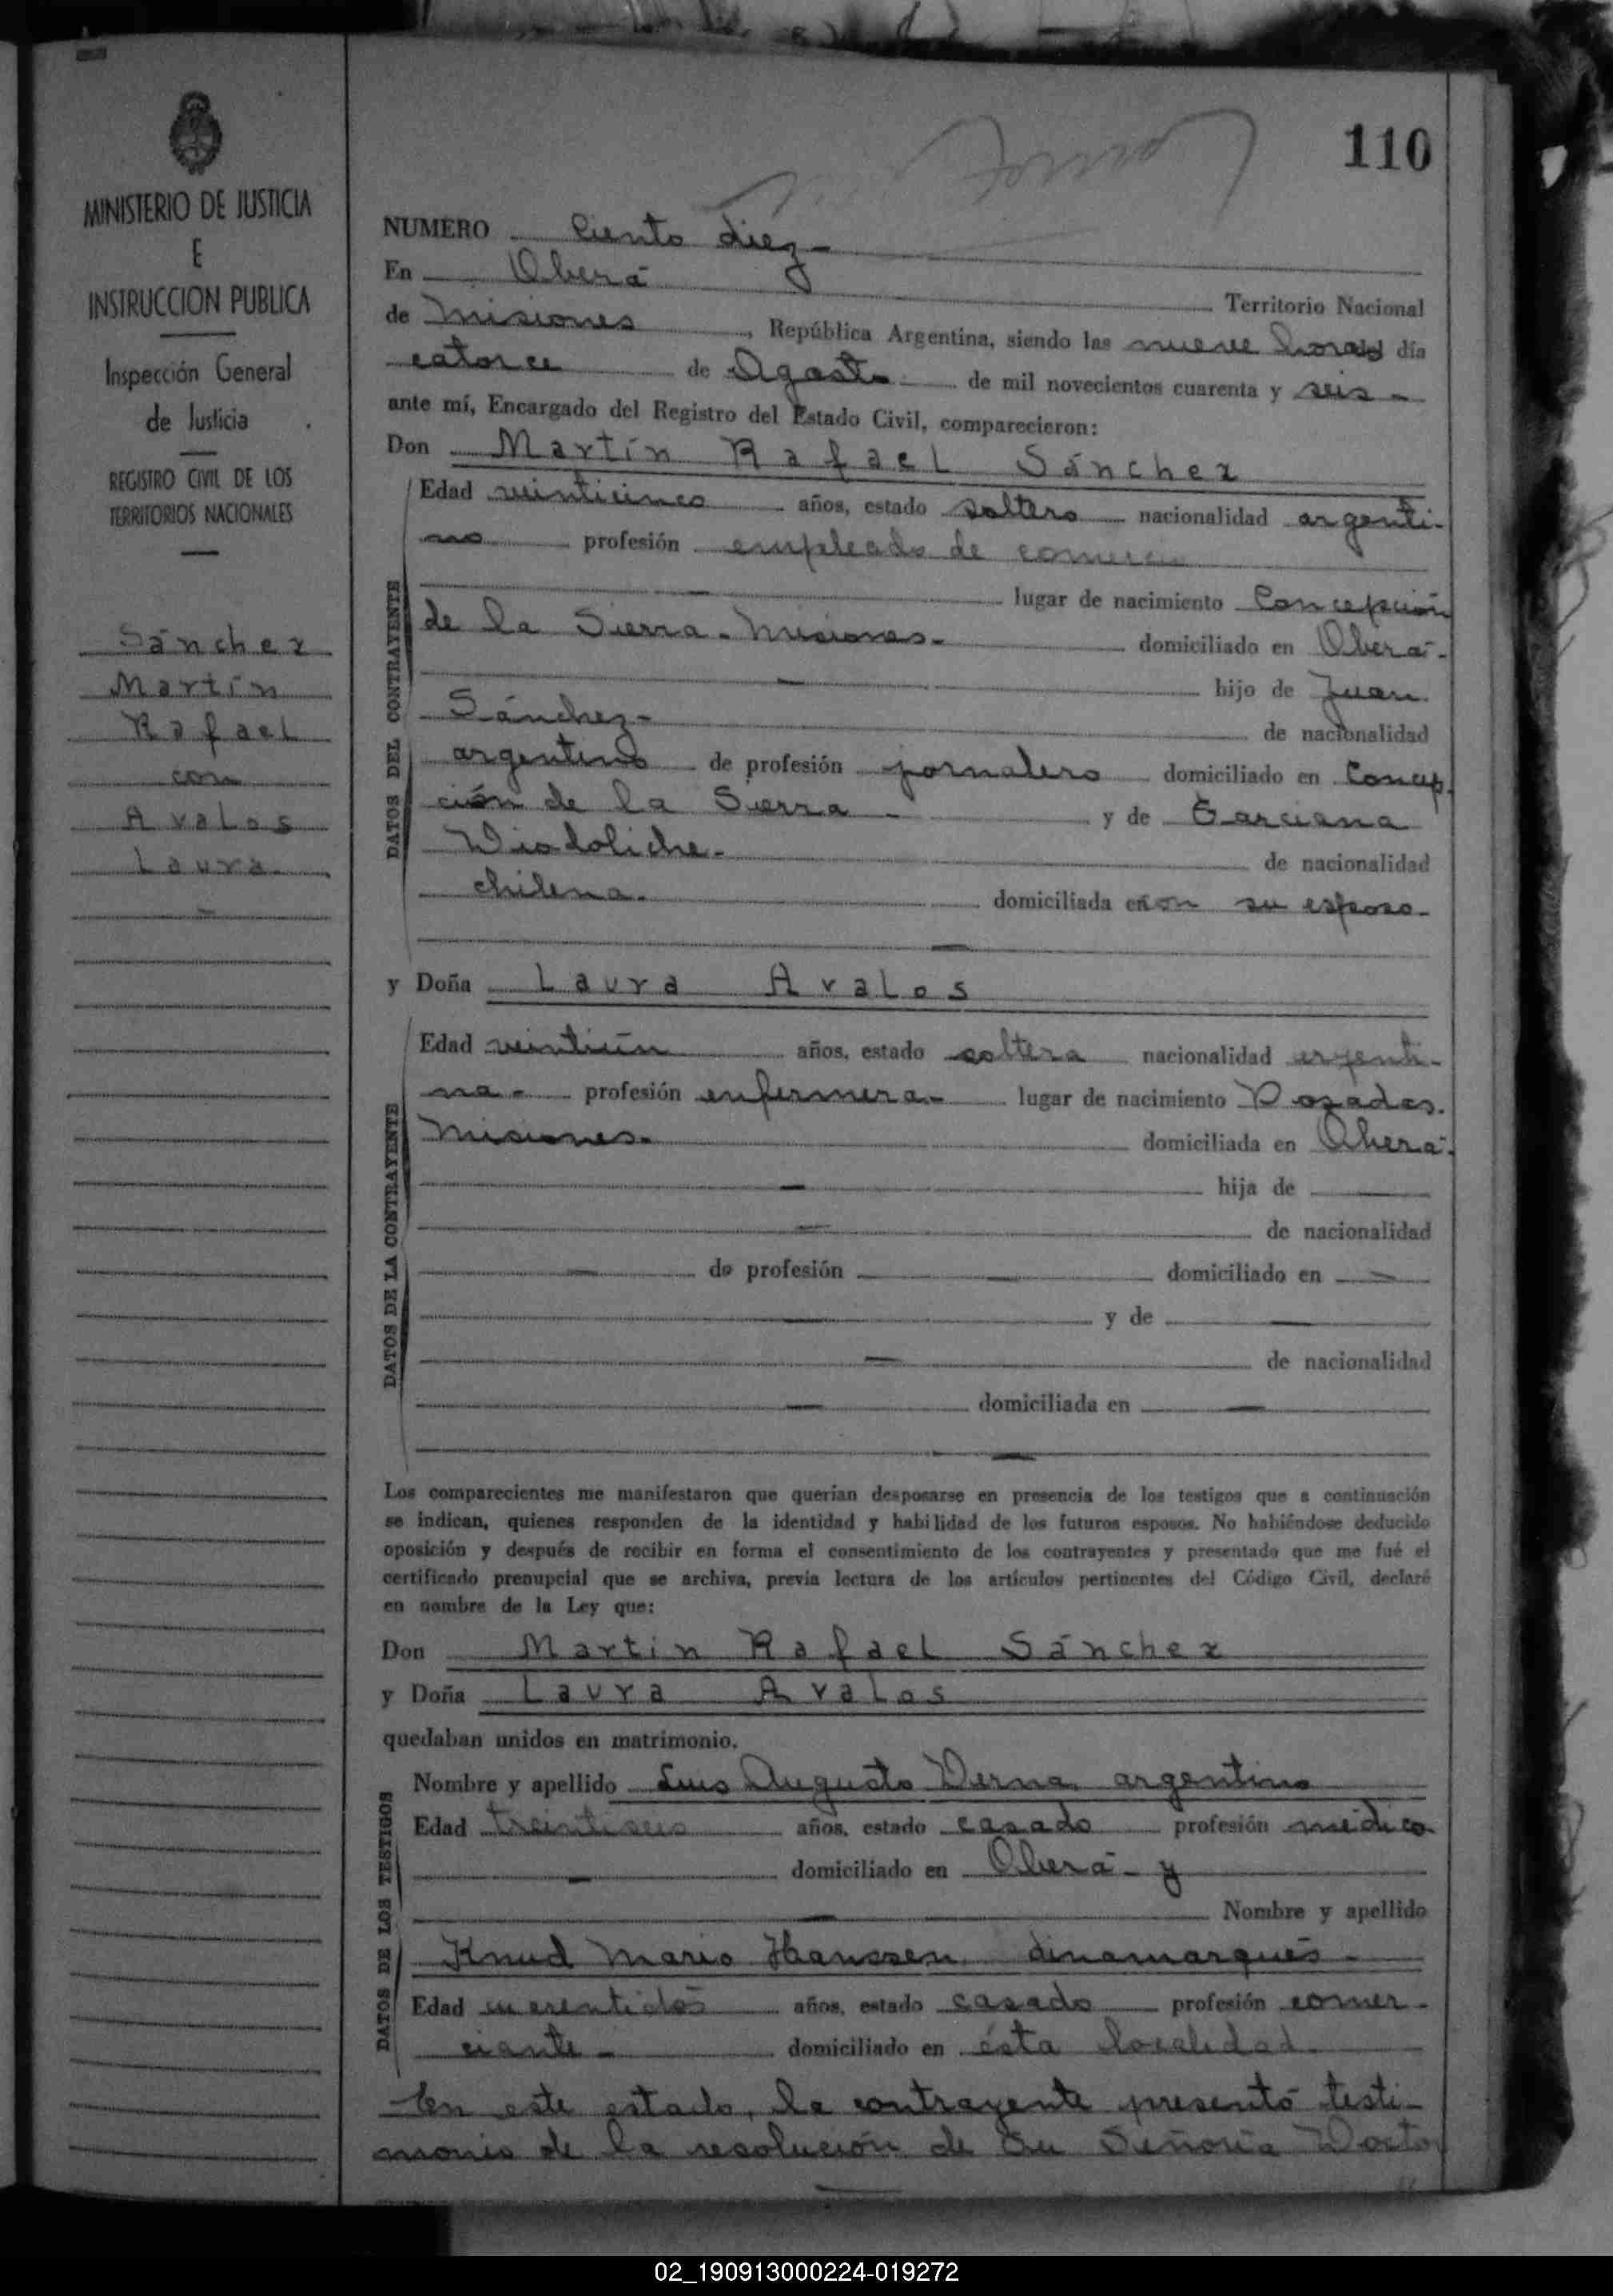 110
MINISTERIO DE JUSTICIA
E
INSTRUCCION PUBLICA
Inspección General
de Justicia
REGISTRO CIVIL DE LOS
TERRITORIOS NACIONALES
Sánchez
Martín
Rafael
con
Avalos
Laura
NUMERO Ciento diez-
En Oberá
Territorio Nacional
de Misiones, República Argentina, siendo las nueve horas día
catorce de Agosto de mil novecientos cuarenta y seis-
ante mí, Encargado del Registro del Estado Civil, comparecieron:
Don Martín Rafael Sánchez
DATOS DEL CONTRAYENTE
Edad veinticinco años, estado soltero nacionalidad argenti-
no profesión empleado de comercio
lugar de nacimiento Concepción
de la Sierra-Misiones- domiciliado en Oberá-
hijo de Juan
Sánchez- de nacionalidad
argentino de profesión jornalero domiciliado en Concep-
ción de la Sierra- y de
de nacionalidad
chilena. domiciliada en con su esposo-
y Doña Laura Avalos
DATOS DE LA CONTRAYENTE
Edad veintiún años, estado soltera nacionalidad argenti-
na- profesión enfermera- lugar de nacimiento Posadas.
Misiones- domiciliada en Oberá-
hija de
de nacionalidad
de profesión domiciliado en
y de
de nacionalidad
domiciliada en
Los comparecientes me manifestaron que querían desposarse en presencia de los testigos que a continuación
se indican, quienes responden de la identidad y habilidad de los futuros esposos. No habiéndose deducido
oposición y después de recibir en forma el consentimiento de los contrayentes y presentado que me fué el
certificado prenupcial que se archiva, previa lectura de los artículos pertinentes del Código Civil, declaré
en nombre de la Ley que:
Don Martín Rafael Sánchez
y Doña Laura Avalos
quedaban unidos en matrimonio.
DATOS DE LOS TESTIGOS
Nombre y apellido Luis Augusto Derna, argentino
Edad treintiseis años, estado casado profesión médico
domiciliado en Oberá- y
Nombre y apellido
Knud Mario Hanssen, dinamarqués-
Edad cuarentidos años, estado casado profesión comer-
ciante- domiciliado en ésta localidad.
En este estado, la contrayente presentó testi-
monio de la resolución de Su Señoría Docto
02_190913000224-019272